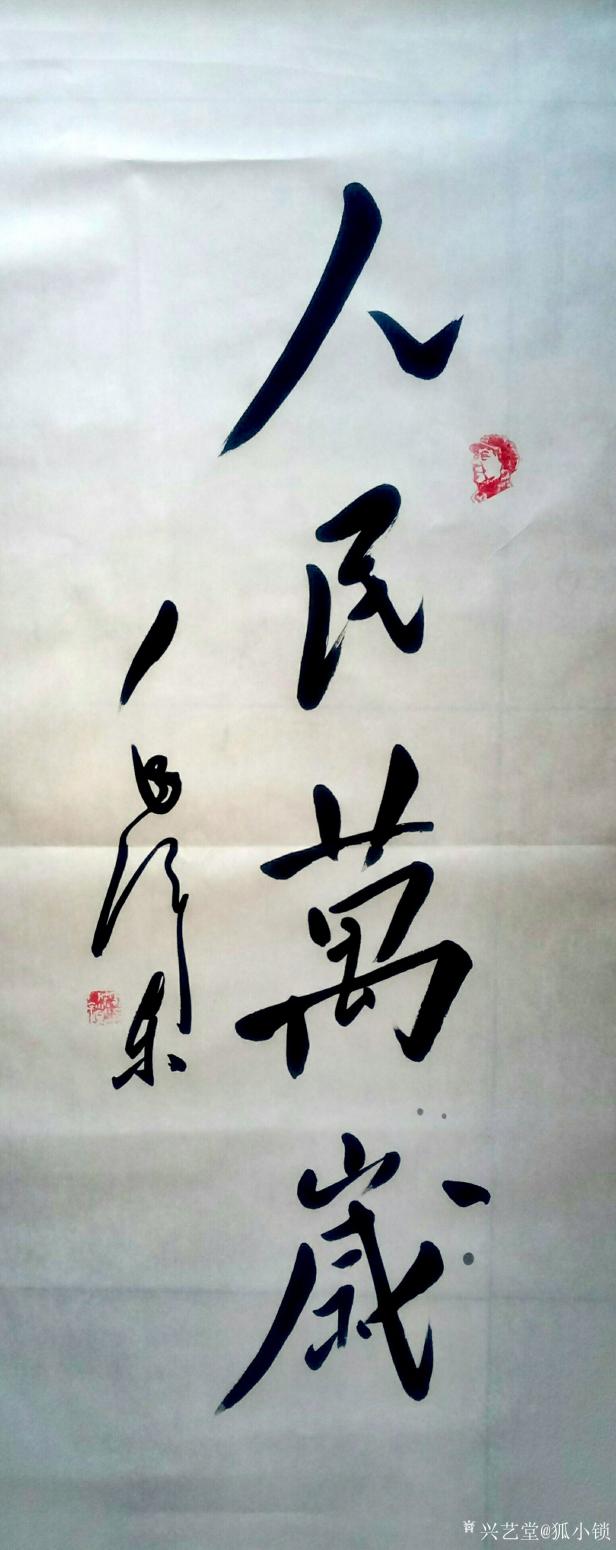 人民萬歲
毛泽东
兴艺堂@狐小锁